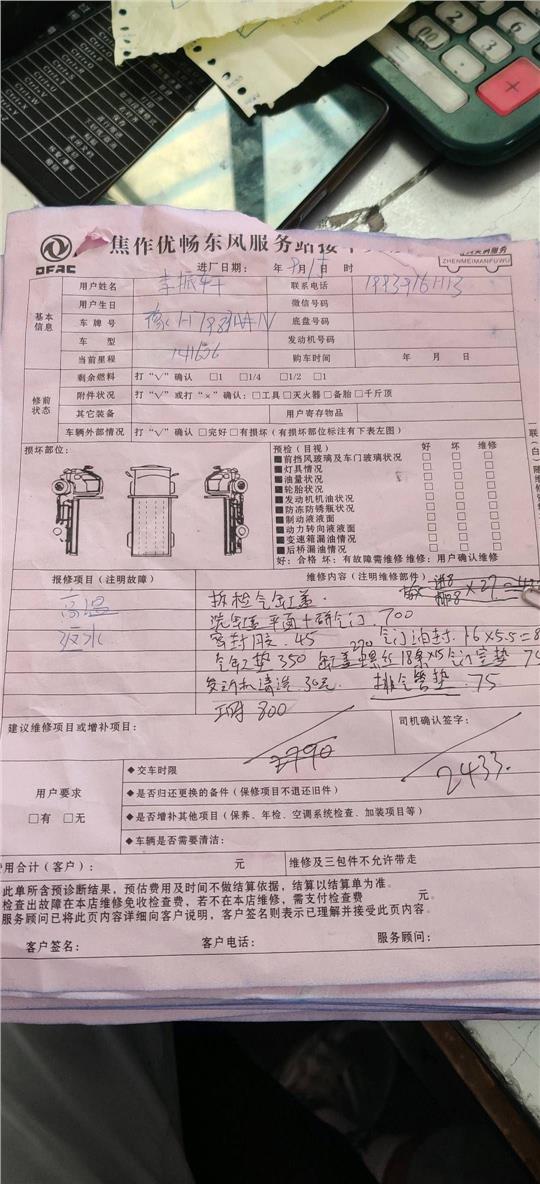 焦作优畅东风服务站接
DFAC
ZHENMEIMANFUWU
进厂日期： 年 9月1 日 时
基本信息
用户姓名 联系电话
用户生日 微信号码
车牌号 底盘号码
车 型 发动机号码
当前里程 141656 购车时间 年 月 日
修前状态
剩余燃料 打“√”确认 □1 □1/4 □1/2 □1
附件状况 打“√”或打“×”确认：□工具□灭火器□备胎□千斤顶
其它装备 用户寄存物品
车辆外部情况 打“√”确认□完好□有损坏（有损坏部位标注有下表左图）
损坏部位： 预检（目视） 好 坏 维修
■前挡风玻璃及车门玻璃状况 □ □ □
■灯具情况 □ □ □
■油量状况 □ □ □
■轮胎状况 □ □ □
■发动机机油状况 □ □ □
■防冻防锈瓶状况 □ □ □
■制动液液面 □ □ □
■动力转向液液面 □ □ □
■变速箱漏油情况 □ □ □
■后桥漏油情况 □ □ □
好：合格 坏：有故障需维修 维修：用户确认维修
报修项目（注明故障） 维修内容（注明维修部件）
高温 拆检气缸盖.
返水 洗缸盖平面十研气门. 700
密封胶. 45 气门油封. 16×5.5=8
气缸垫 350 270 缸盖螺丝18条×15 气门室垫 75
发动机清洗. 30元. 排气管垫. 75
工时 800
×27
建议维修项目或增补项目： 司机确认签字：
2790
2433.
用户要求
□有 □无
◆交车时限
◆是否归还更换的备件（保修项目不退还旧件）
◆是否增补其他项目（保养、年检、空调系统检查、加装项目等）
◆车辆是否需要清洁：
费用合计（客户）： 元 维修及三包件不允许带走
此单所含预诊断结果，预估费用及时间不做结算依据，结算以结算单为准。
检查出故障在本店维修免收检查费，若不在本店维修，需支付检查费 元。
服务顾问已将此页内容详细向客户说明，客户签名则表示已理解并接受此页内容。
客户签名： 客户电话： 服务顾问：